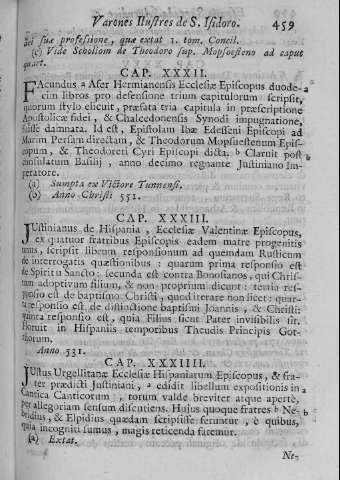 Varones Ilustres de S. Isidoro. 459
dei suæ professione, quæ extat 1. tom. Concil.
(c) Vide Scholiom de Theodoro sup. Mopsoesteno ad caput
quart.
CAP. XXXII.
FAcundus a Afer Hermianensis Ecclesiæ Episcopus duode-
cim libros pro defensione trium capitulorum scripsit,
quorum stylo elicuit, præfata tria capitula in præscriptione
Apostolicæ fidei, & Chalcedonensis Synodi impugnatione,
fuisse damnata. Id est, Epistolam Ibæ Edesseni Episcopi ad
Marim Persam directam, & Theodorum Mopsuestenum Epis-
copum, & Theodoreti Cyri Episcopi dicta. b Claruit post b
consulatum Basilij, anno decimo regnante Justiniano Im-
peratore.
(a) Sumpta ex Victore Tunnensi.
(b) Anno Christi 551.
CAP. XXXIII.
JUstinianus de Hispania, Ecclesiæ Valentinæ Episcopus,
ex quatuor fratribus Episcopis eadem matre progenitis
unus, scripsit librum responsionum ad quendam Rusticum
de interrogatis quæstionibus: quarum prima responsio est
de Spiritu Sancto: secunda est contra Bonosianos, qui Chris-
tum adoptivum filium, & non proprium dicunt: tertia res-
ponsio est de baptismo Christi, quod iterare non licet: quar-
ta responsio est de distinctione baptismi Joannis, & Christi:
quinta responsio est, quia Filius sicut Pater invisibilis sit.
Floruit in Hispaniis temporibus Theudis Principis Got-
thorum.
Anno 531.
CAP. XXXIIII.
JUstus Urgellitanæ Ecclesiæ Hispaniarum Episcopus, & fra-
ter prædicti Justiniani, a edidit libellum expositionis in a
Cantica Canticorum: totum valde breviter atque apertè,
per allegoriam sensum discutiens. Hujus quoque fratres b Ne- b
bridius, & Elpidius quædam scripsisse feruntur, è quibus,
quia incogniti sumus, magis reticenda fatemur.
(a) Extat.
Ne-